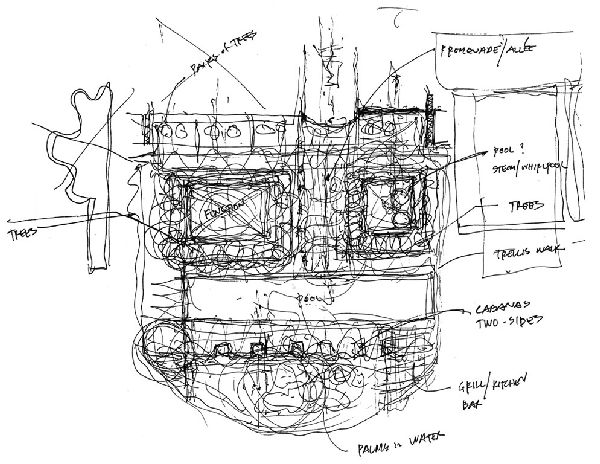 PROMENADE/ALLÉE
POOL?
STEAM/WHIRLPOOL
TREES
TREES
TRELLIS WALK
POOL
CABANAS
TWO-SIDES
GRILL/KITCHEN
BAR
PALMS in WATER